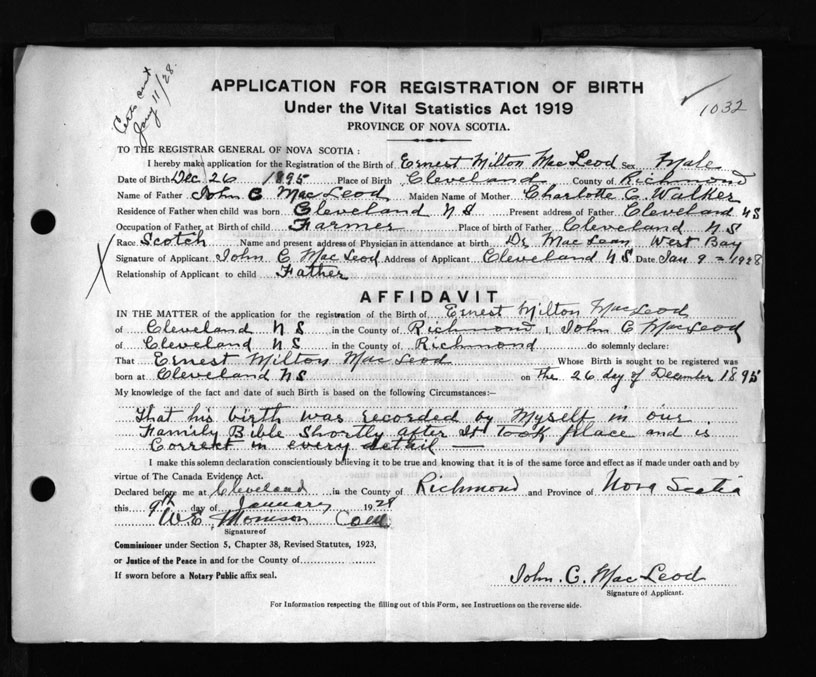 Jany 11/28.
1032
APPLICATION FOR REGISTRATION OF BIRTH
Under the Vital Statistics Act 1919
PROVINCE OF NOVA SCOTIA.
TO THE REGISTRAR GENERAL OF NOVA SCOTIA :
I hereby make application for the Registration of the Birth of Ernest Milton MacLeod Sex Male
Date of Birth Dec 26 1895 Place of Birth Cleveland County of Richmond
Name of Father John C MacLeod Maiden Name of Mother Charlotte C. Walker
Residence of Father when child was born Cleveland N S Present address of Father Cleveland N S
Occupation of Father at Birth of child Farmer Place of birth of Father Cleveland N S
Race Scotch Name and present address of Physician in attendance at birth Dr MacLean West Bay
Signature of Applicant John C MacLeod Address of Applicant Cleveland N S Date Jan 9 = 1928
Relationship of Applicant to child Father
AFFIDAVIT
IN THE MATTER of the application for the registration of the Birth of Ernest Milton MacLeod
of Cleveland N S in the County of Richmond I, John C MacLeod
of Cleveland N S in the County of Richmond do solemnly declare:
That Ernest Milton MacLeod Whose Birth is sought to be registered was
born at Cleveland N S on The 26 day of December 1895
My knowledge of the fact and date of such Birth is based on the following Circumstances:–
That his birth was recorded by Myself in our
Family Bible Shortly after It Took place and is
Correct in every detail —
I make this solemn declaration conscientiously believing it to be true and knowing that it is of the same force and effect as if made under oath and by
virtue of The Canada Evidence Act.
Declared before me at Cleveland in the County of Richmond and Province of Nova Scotia
this 9th day of January 1928
W E Morrison
Signature of
Commissioner under Section 5, Chapter 38, Revised Statutes, 1923,
or Justice of the Peace in and for the County of
If sworn before a Notary Public affix seal.
John. C. MacLeod
Signature of Applicant.
For Information respecting the filling out of this Form, see Instructions on the reverse side.